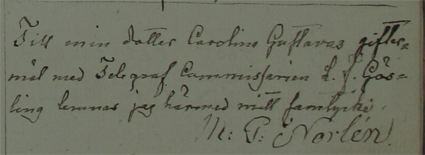 Till min dotter Carolina Gustavas gifter-
mål med Telegraf Commissarien L. J. Gös-
ling lemnas jag härmed mitt samtycke.
M: G: Norlén